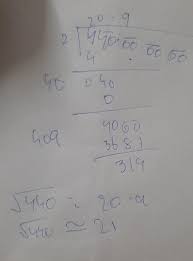 20.9
2 √440.00 00 00
4
40 040
0
409 4000
3681
319
√440 = 20.9
√440 ≃ 21